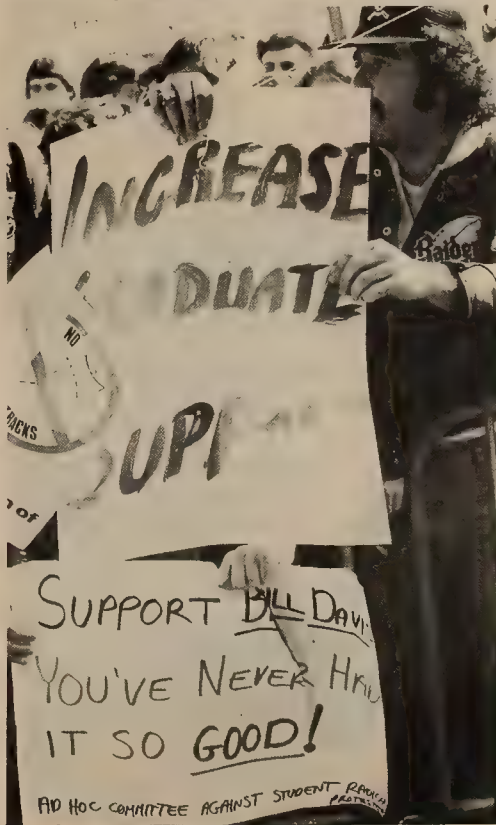 INCREASE
DUATE
SUPP
NO
of
Raider
SUPPORT BILL DAVI
YOU'VE NEVER HAD
IT SO GOOD!
AD HOC COMMITTEE AGAINST STUDENT